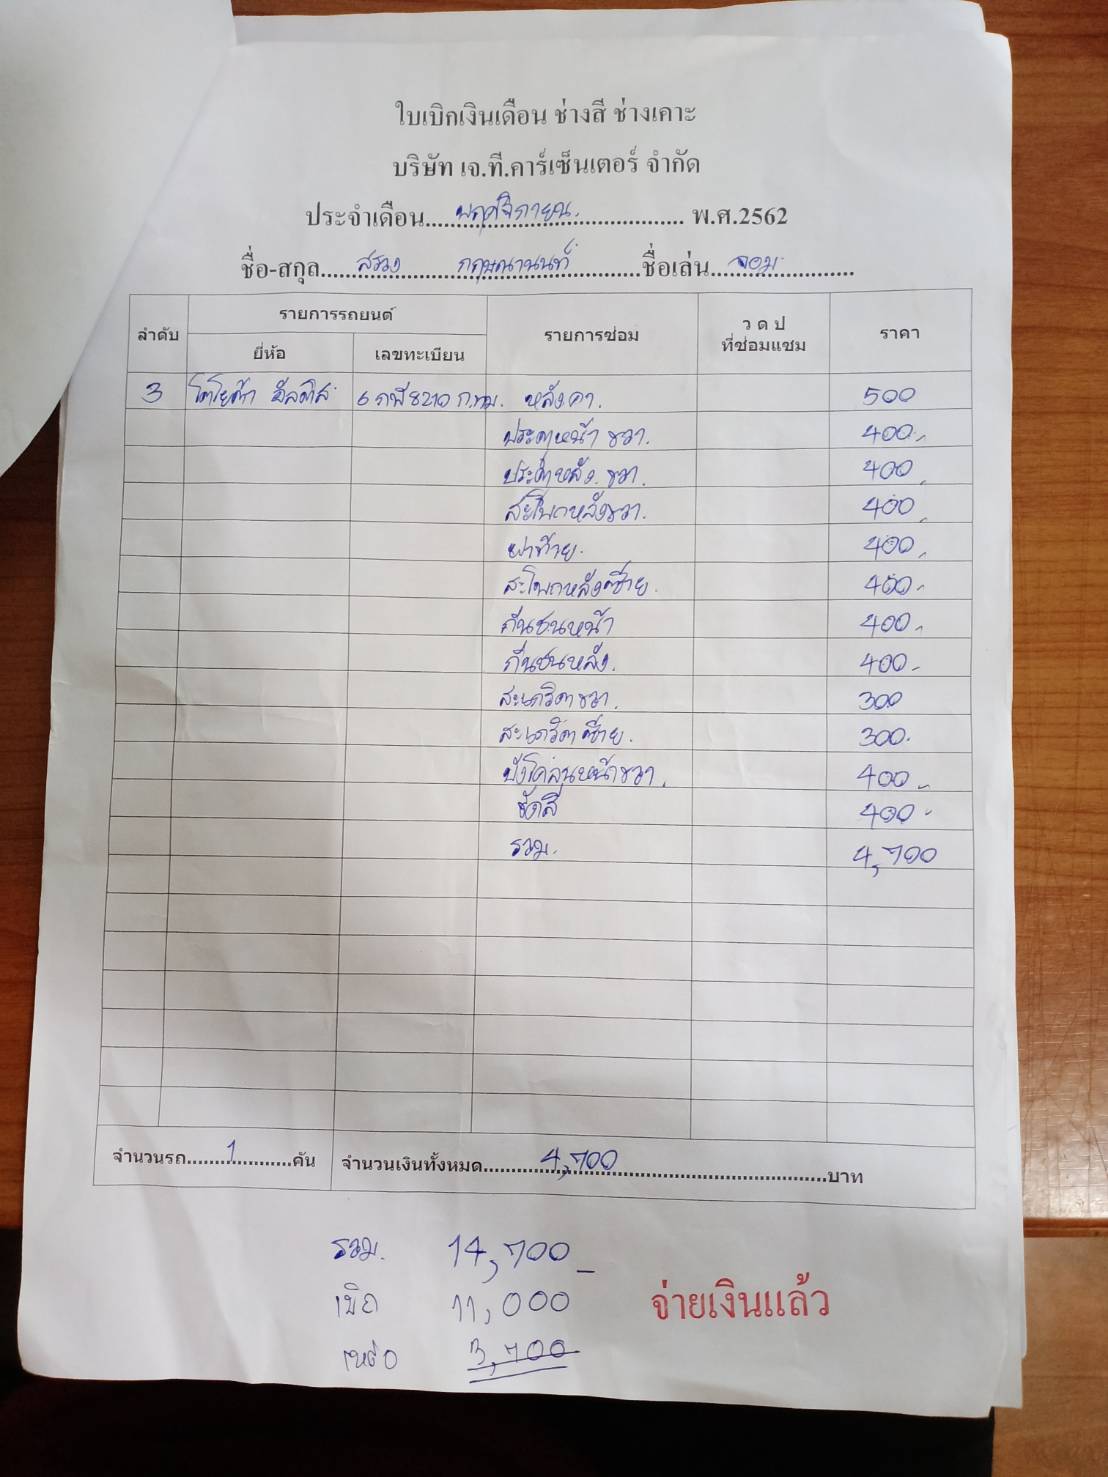 ใบเบิกเงินเดือน ช่างสี ช่างเคาะ
บริษัท เจ.ที.คาร์เซ็นเตอร์ จำกัด
ประจำเดือน พฤศจิกายน. พ.ศ.2562
ชื่อ-สกุล กฤษณานนท์ ชื่อเล่น จอม
ลำดับ รายการรถยนต์ รายการซ่อม ว ด ป ที่ซ่อมแซม ราคา
ยี่ห้อ เลขทะเบียน
3 โตโยต้า อัลติส 6 กฬ 8210 ก.ทม. หลังคา. 500
ประตูหน้า ขวา. 400.-
ประตูหลัง. ขวา. 400
สะโพกหลังขวา. 400
ฝาท้าย. 400
สะโพกหลังซ้าย. 400-
กันชนหน้า 400-
กันชนหลัง. 400-
สะเกริตขวา. 300
สะเกริตซ้าย. 300.
บังโคลนหน้าขวา. 400-
ขัดสี 400-
รวม. 4,700
จำนวนรถ 1 คัน จำนวนเงินทั้งหมด 4,700 บาท
รวม. 14,700-
เบิก 11,000
เหลือ 3,700
จ่ายเงินแล้ว